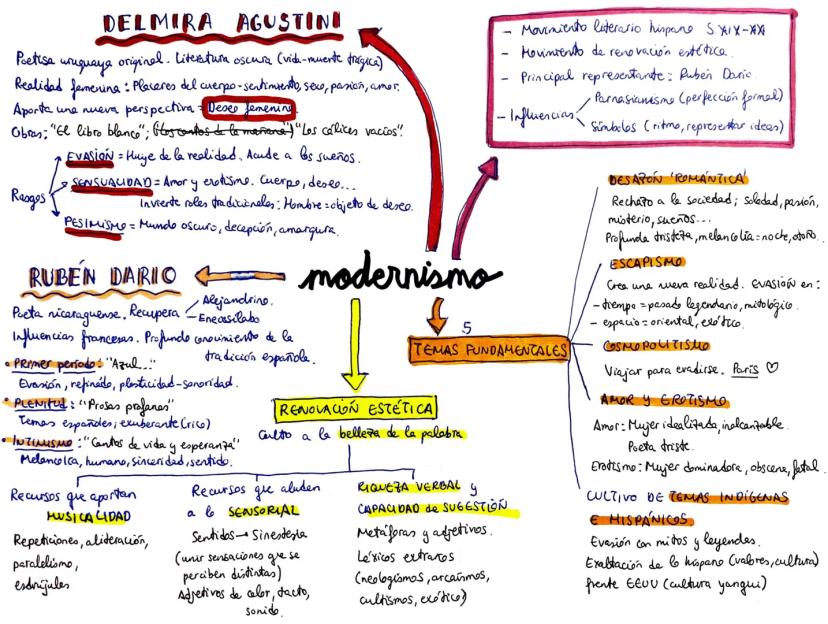 DELMIRA AGUSTINI
Poetisa uruguaya original. Literatura oscura (vida-muerte trágica)
Realidad femenina: Placeres del cuerpo-sentimiento, sexo, pasión, amor.
Aporta una nueva perspectiva = Deseo femenino
Obras: "El libro blanco"; ("Los cantos de la mañana") "Los cálices vacíos".
Rasgos
EVASIÓN = Huye de la realidad. Acude a los sueños.
SENSUALIDAD = Amor y erotismo. Cuerpo, deseo...
Invierte roles tradicionales: Hombre = objeto de deseo.
PESIMISMO = Mundo oscuro, decepción, amargura.
- Movimiento literario hispano S XIX-XX
- Movimiento de renovación estética.
- Principal representante: Rubén Darío.
- Influencias
Parnasianismo (perfección formal)
Símbolos (ritmo, representar ideas)
modernismo
RUBÉN DARIO
Poeta nicaraguense. Recupera
- Alejandrino.
- Eneasílabo
Influencias francesas. Profundo conocimiento de la
tradición española.
• PRIMER período: "Azul..."
Evasión, refinado, plasticidad-sonoridad.
• PLENITUD: "Prosas profanas"
Temas españoles; exuberante (rico)
• INTIMISMO: "Cantos de vida y esperanza"
Melancolca, humano, sinceridad, sentido.
RENOVACIÓN ESTÉTICA
Culto a la belleza de la palabra
Recursos que aportan
MUSICALIDAD
Repeticiones, aliteración,
paralelismo,
esdrújulas
Recursos que aluden
a lo SENSORIAL
Sentidos → Sinestesia
(unir sensaciones que se
perciben distintas)
Adjetivos de color, tacto,
sonido.
RIQUEZA VERBAL y
CAPACIDAD de SUGESTIÓN
Metáforas y adjetivos.
Léxicos extraños
(neologismos, arcaísmos,
cultismos, exótico)
5
TEMAS FUNDAMENTALES
DESAZÓN 'ROMÁNTICA'
Rechazo a la sociedad; soledad, pasión,
misterio, sueños...
Profunda tristeza, melancolía = noche, otoño.
ESCAPISMO
Crea una nueva realidad. EVASIÓN en:
- tiempo = pasado legendario, mitológico.
- espacio: oriental, exótico.
COSMOPOLITISMO
Viajar para evadirse. París ♡
AMOR Y EROTISMO
Amor: Mujer idealizada, inalcanzable.
Poeta triste.
Erotismo: Mujer dominadora, obscena, fatal.
CULTIVO DE TEMAS INDÍGENAS
E HISPÁNICOS
Evasión con mitos y leyendas.
Exaltación de lo hispano (valores, cultura)
frente EEUU (cultura yanqui)